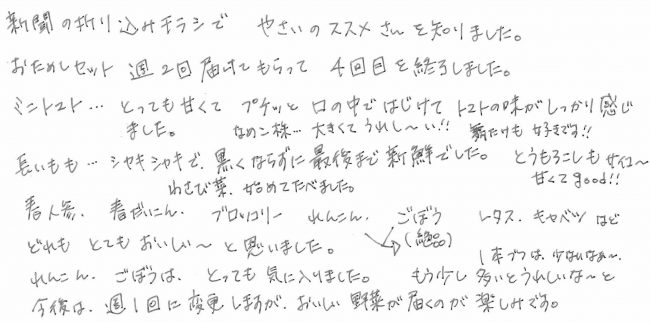 新聞の折り込みチラシで やさいのススメさんを知りました。
おためしセット 週2回届けてもらって 4回目を終了しました。
ミニトマト… とっても甘くて プチッと 口の中で はじけて トマトの味がしっかり感じ
ました。 なめコ株… 大きくてうれし〜い!! 舞たけも 好きです!!
長いも… シャキシャキで、黒くならずに 最後まで新鮮でした。 とうもろこしも サイコ〜
わさび菜、始めてたべました。 甘くてgood!!
春人参、春だいこん、ブロッコリー れんこん、ごぼう レタス、キャベツ など
(絶品)
どれも とてもおいし〜 と思いました。
1本づつは、少ないなぁ〜、
れんこん、ごぼうは、とっても 気に入りました。 もう少し 多いとうれしいな〜と
今後は、週1回に変更しますが、おいしい 野菜が届くのが 楽しみです。